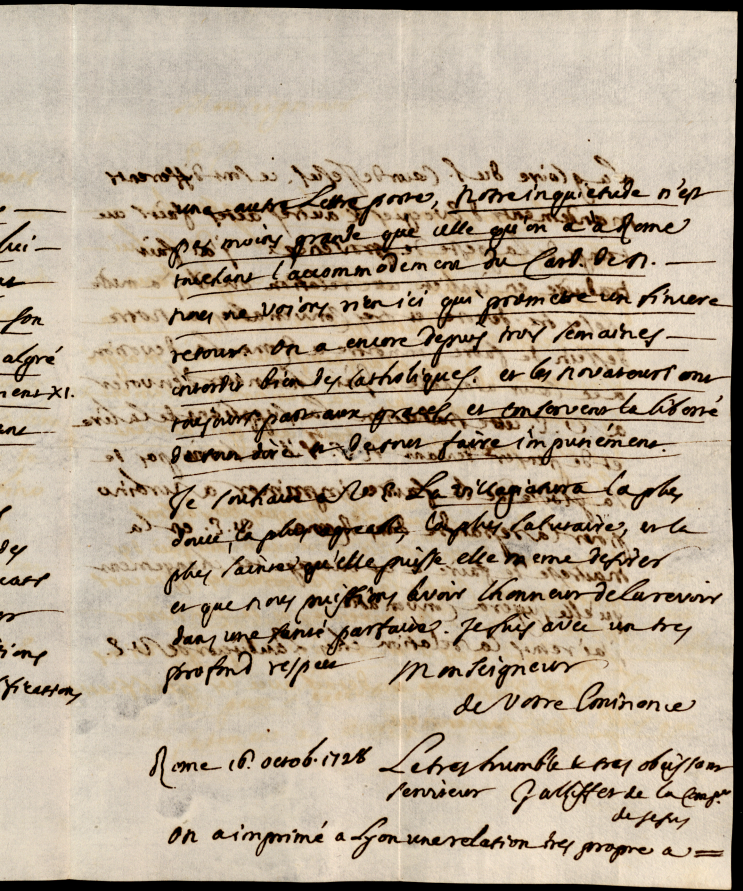 lui —
son
algré
ment XI.
ant
des
tions
une autre Lettre porte, Notre inquietude n'est
pas moins grande que celle qu'on a a Rome
touchant l'accommodement du Card. de N. —
nous ne voions rien ici qui promette un sincere
retour. on a encore depuis trois semaines —
interdit bien des catholiques. et les novateurs ont
toujours part aux graces et conservent la liberté
de tout dire et de tout faire impunément.
Je souhaite a V. E. La villegiatura la plus
douce, la plus agreable, la plus salutaire, et la
plus sainte qu'elle puisse elle meme desirer
et que nous puissions avoir l'honneur de la revoir
dans une santé parfaite. Je suis avec un tres
profond respect Monseigneur
de Votre Eminence
Rome 16. octob. 1728 Le tres humble & tres obeissant
serviteur Galliffet de la Comp.e
de Jesus
On a imprimé a Lyon une relation tres propre a =